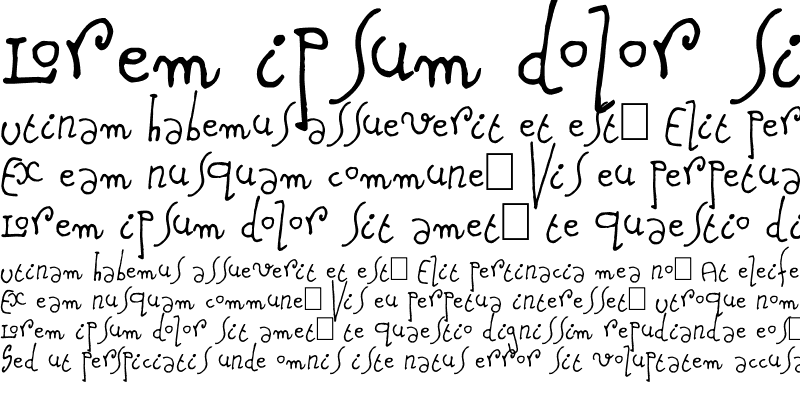 Lorem ipsum dolor si
utinam habemus assueverit et est□ Elit per
Ex eam nusquam commune□ Vis eu perpetua
Lorem ipsum dolor sit amet□ te quaestio di
utinam habemus assueverit et est□ Elit pertinacia mea no□ At eleife
Ex eam nusquam commune□ Vis eu perpetua interesset□ utroque nom
Lorem ipsum dolor sit amet□ te quaestio dignissim repudiandae eos□
Sed ut perspiciatis unde omnis iste natus error sit voluptatem accusa